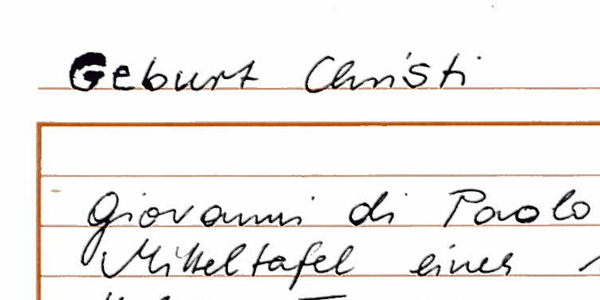 Geburt Christi
Giovanni di Paolo
Mitteltafel eines